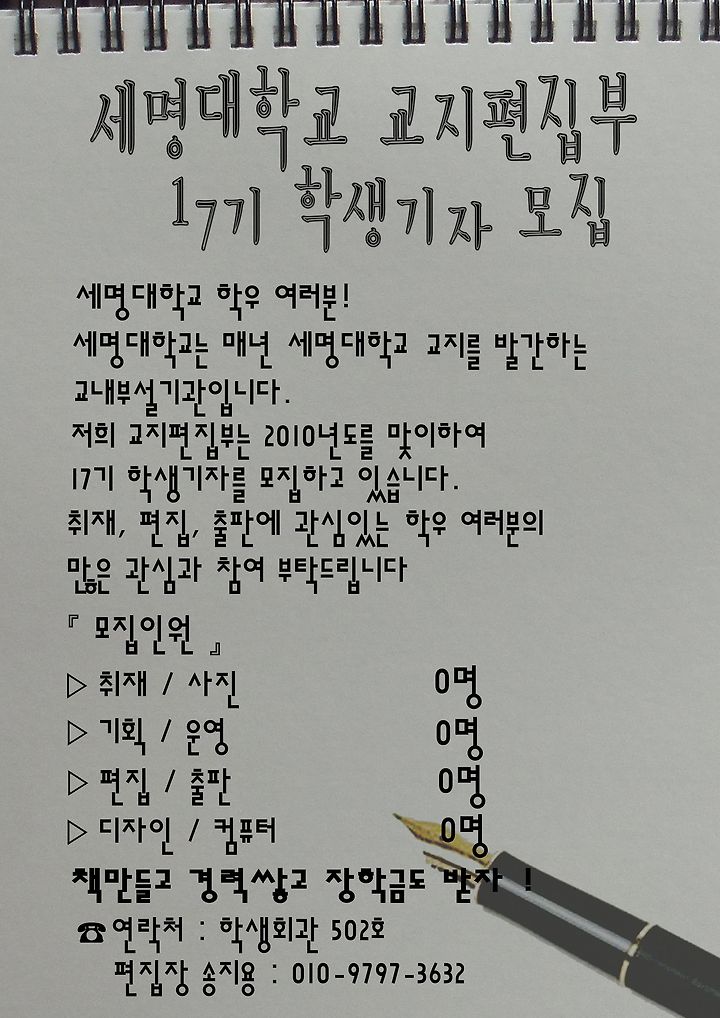 세명대학교 교지편집부
17기 학생기자 모집
세명대학교 학우 여러분!
세명대학교는 매년 세명대학교 교지를 발간하는
교내부설기관입니다.
저희 교지편집부는 2010년도를 맞이하여
17기 학생기자를 모집하고 있습니다.
취재, 편집, 출판에 관심있는 학우 여러분의
많은 관심과 참여 부탁드립니다
『 모집인원 』
▷ 취재 / 사진 0명
▷ 기획 / 운영 0명
▷ 편집 / 출판 0명
▷ 디자인 / 컴퓨터 0명
책만들고 경력쌓고 장학금도 받자 !
☎연락처 : 학생회관 502호
편집장 송지용 : 010-9797-3632